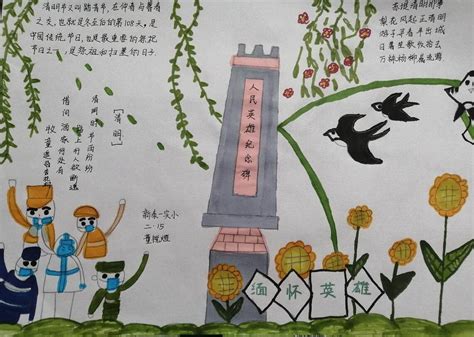 清明节又叫踏青节,在仲春与暮春
之交,也就是冬至后的第108天,是
中国传统节日,也是最重要的祭祀
节日之一,是祭祖和扫墓的日子。
苏堤清明即事
梨花风起正清明
游子寻春半出城
日暮笙歌收拾去
万株杨柳属流莺
人民英雄纪念碑
[清明]
清明时节雨纷纷
路上行人欲断魂
借问酒家何处有
牧童遥指杏花村
新泰一实小
二·15
缅怀英雄